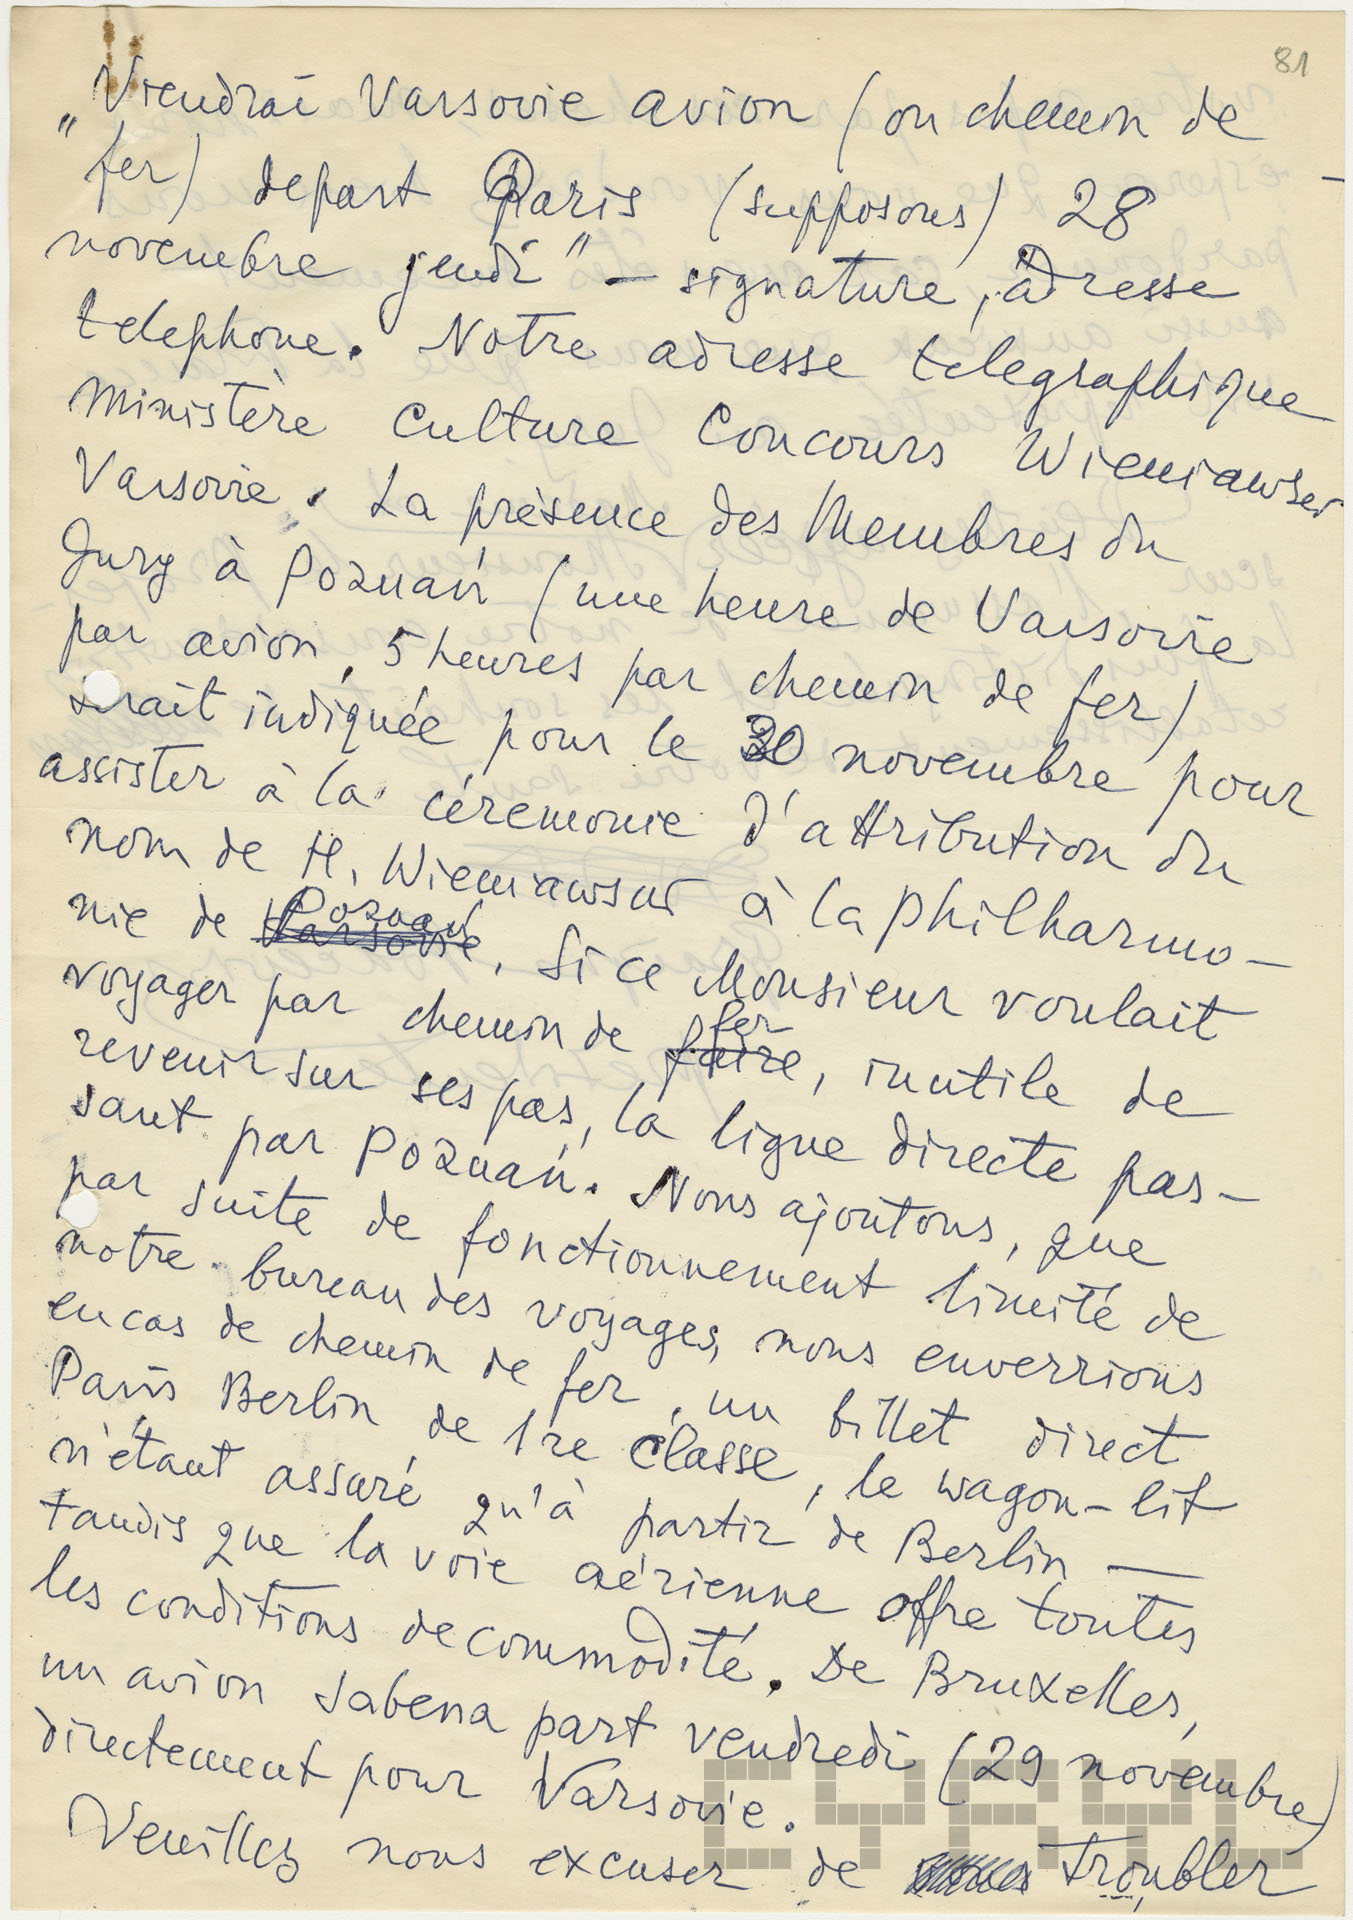 81
„Viendrai Varsovie avion (ou chemin de
fer) depart Paris (supposons) 28
novembre jeudi" — signature, adresse
telephone. Notre adresse telegraphique
Ministère Culture Concours Wieniawski
Varsovie. La présence des Membres du
Jury à Poznań (une heure de Varsovie
par avion, 5 heures par chemin de fer)
serait indiquée pour le 30 novembre pour
assister à la céremonie d'attribution du
nom de H. Wieniawski à la Philharmo-
nie de Varsovie Poznań. Si ce Monsieur voulait
voyager par chemin de faire fer, inutile de
revenir sur ses pas, la ligne directe pas-
sant par Poznań. Nous ajoutons, que
par suite de fonctionnement limité de
notre bureau des voyages, nous enverrions
en cas de chemin de fer, un billet direct
Paris Berlin de 1re classe, le wagon-lit
n'étant assuré qu'à partir de Berlin —
tandis que la voie aérienne offre toutes
les conditions de commodité. De Bruxelles,
un avion Sabena part vendredi (29 novembre)
directement pour Varsovie.
Veuillez nous excuser de troubler